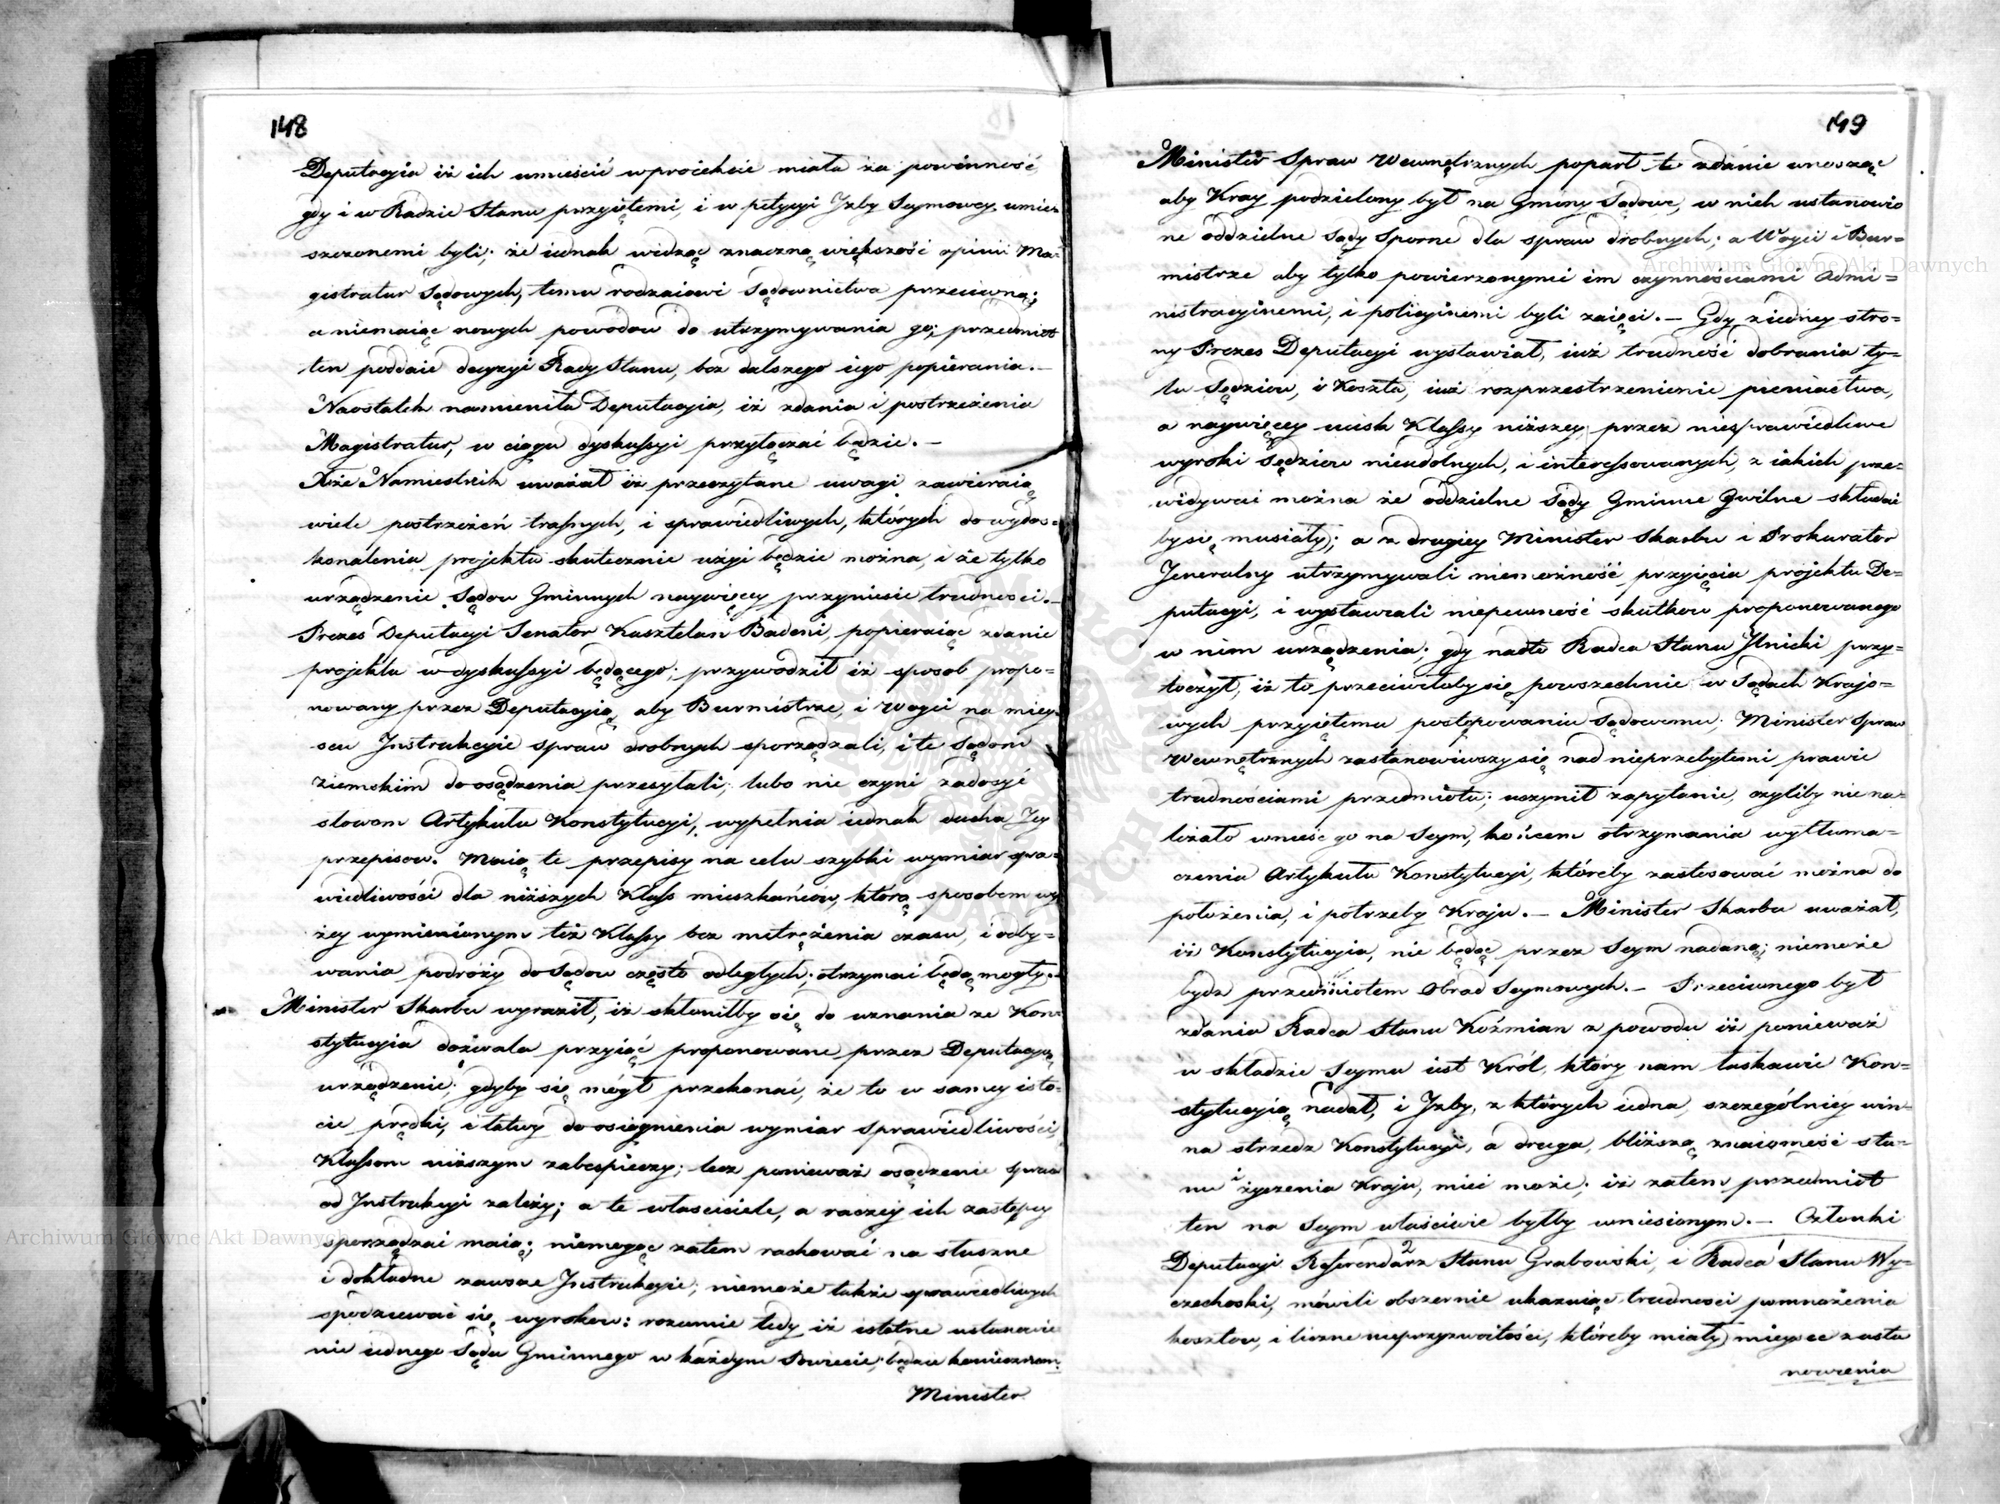 148
Deputacyia iż ich umieścić w proiekcie miała za powinność,
gdy i w Radzie Stanu przyiętemi, i w petycyi Izby Seymowey umie-
szczonemi byli; że iednak widząc znaczną większość opinii Ma-
gistratur Sądowych, temu rodzaiowi Sądownictwa przeciwną;
a niemaiąc nowych powodow do utrzymywania go; przedmiot
ten poddaie decyzyi Rady Stanu, bez dalszego iego popierania.—
Naostatek namieniła Deputacyia, iż zdania i postrzeżenia
Magistratur, w ciągu dyskussyi przytączać będzie.—
Xże Namiestnik uważał iż przeczytane uwagi zawieraią
wiele postrzeżeń trafnych, i sprawiedliwych, których do wydos-
konalenia projektu skutecznie użyć będzie można, i że tylko
urządzenie Sądow Gminnych naywięcey przyniesie trudności.—
Prezes Deputacyi Senator Kasztelan Badeni, popieraiąc zdanie
projektu w dyskussyi będącego; przywodził iż sposob propo-
nowany przez Deputacyią, aby Burmistrze, i Woyci na miey-
scu Instrukcyie spraw drobnych sporządzali, i te Sądom
Ziemskim do osądzenia przesyłali; lubo nie czyni zadosyć
słowom Artykułu Konstytucyi, wypełnia iednak ducha Jey
przepisow. Maią te przepisy na celu szybki wymiar spra-
wiedliwości dla niższych Klass mieszkańców, którą sposobem wy-
żey wymienionym też Klassy bez mitrężenia czasu, i odby-
wania podróży do Sądow często odległych; otrzymać będą mogły.—
Minister Skarbu wyraził, iż skłoniłby się do uznania że Kon-
stytucyia dozwala przyiąć proponowane przez Deputacyią
urządzenie; gdyby się mógł przekonać, że to w samey isto-
cie prędki, i łatwy do osiągnienia wymiar sprawiedliwości,
Klassom niższym zabespieczy; lecz ponieważ osądzenie spraw
od Instrukcyi zależy; a te właściciele, a raczey ich zastępcy
sporządzać maią; niemogąc zatem rachować na słuszne
i dokładne zawsze Instrukcyie; niemoże także sprawiedliwych
spodziewać się wyrokow: rozumie tedy iż istotne ustanowie-
nie iednego Sądu Gminnego w każdym Powiecie, będzie koniecznem.
Minister
149
Minister Spraw Wewnętrznych poparł te zdanie wnosząc
aby Kray podzielony był na Gminy Sądowe, w nich ustanowio
ne oddzielne Sądy Sporne dla spraw drobnych; a Woyci i Bur-
mistrze aby tylko powierzonymi im czynnościami Admi-
nistracyinemi, i policyinemi byli zaięci.— Gdy z iedney stro-
ny Prezes Deputacyi wystawiał, iuż trudność dobrania ty-
lu Sędziow, i Koszta, iuż rozprzestrzenienie pieniactwa,
a naywięcey ucisk Klassy niższey, przez niesprawiedliwe
wyroki Sędziow nieudolnych, i interessowanych, z iakich prze-
widywać można że oddzielne Sądy Gminne Cywilne składać
by się musiały; a z drugiey Minister Skarbu i Prokurator
Jeneralny utrzymywali niemożność przyięcia projektu De-
putacyi, i wystawiali niepewność skutkow proponowanego
w nim urządzenia; gdy nadto Radca Stanu Ilnicki przy-
toczył, iż to przeciwiłoby się powszechnie w Sądach Krajo-
wych przyiętemu postępowaniu Sądowemu; Minister Spraw
Wewnętrznych zastanowiwszy się nad nieprzebytemi prawie
trudnościami przedmiotu; uczynił zapytanie, czyliby nie na-
leżało wnieść go na Seym, końcem otrzymania wytłuma-
czenia Artykułu Konstytucyi, któreby zastosować można do
położenia, i potrzeby Kraju.— Minister Skarbu uważał,
iż Konstytucyia, nie będąc przez Seym nadaną; niemoże
bydz przedmiotem Obrad Seymowych.— Przeciwnego był
zdania Radca Stanu Koźmian z powodu iż ponieważ
w składzie Seymu iest Król, który nam łaskawie Kon-
stytucyią nadał, i Izby, z których iedna szczególniey win-
na strzedz Konstytucyi, a druga, bliższą znaiomość sta-
nu i życzenia Kraju, mieć może; iż zatem przedmiot
ten na Seym właściwie byłby wniesionym.— Członki
Deputacyi 2 Referendarz Stanu Grabowski, i 1 Radca Stanu Wy-
czechoski, mówili obszernie ukazuiąc trudności pomnożenia
kosztow, i liczne nieprzyzwoitości, któreby miały mieysce z usta
nowienia
Archiwum Główne Akt Dawnych
Archiwum Główne Akt Dawnych